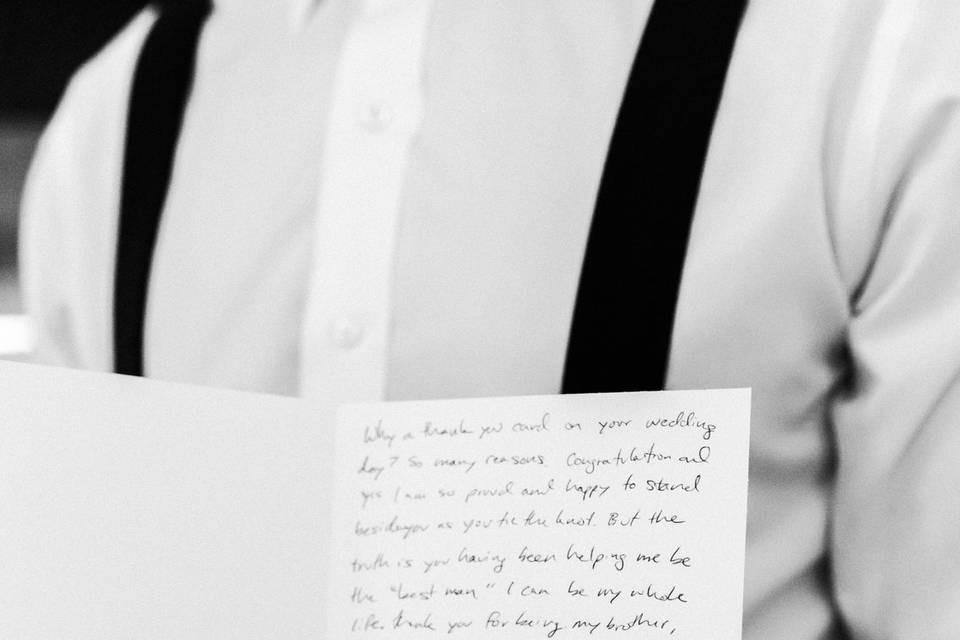 Why a thank you card on your wedding
day? So many reasons. Congratulation and
yes I am so proud and happy to stand
beside you as you tie the knot. But the
truth is you having been helping me be
the "best man" I can be my whole
life. Thank you for being my brother,